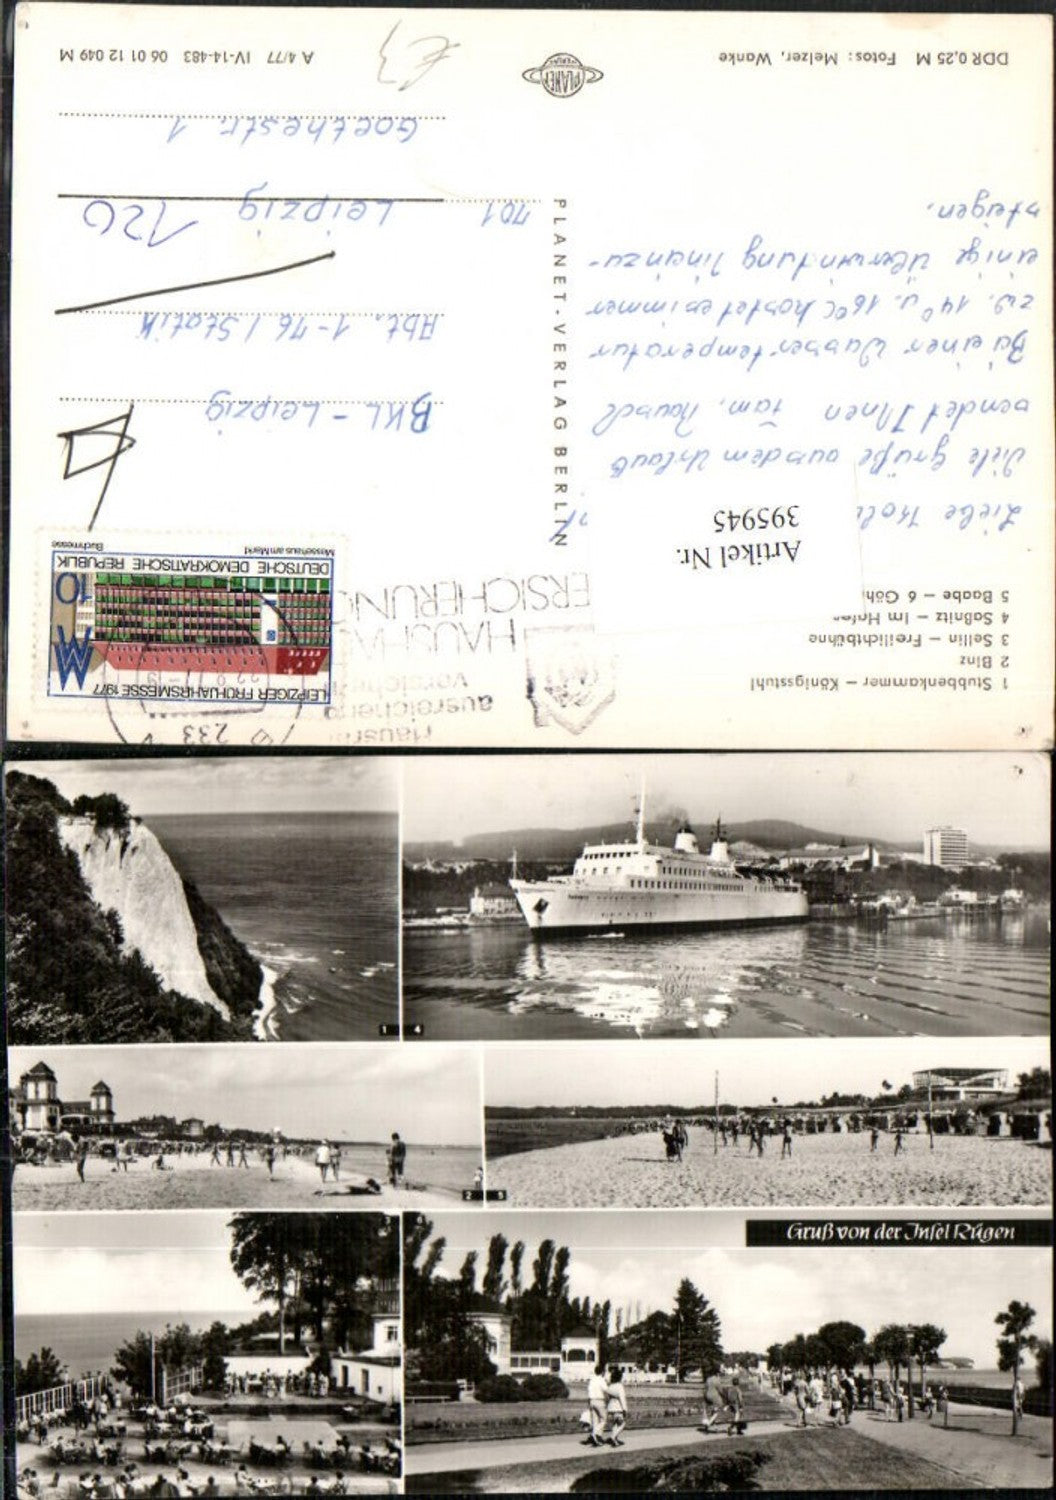 1 Stubbenkammer – Königsstuhl
2 Binz
3 Sellin – Freilichtbühne
4 Saßnitz – Im Hafen
5 Baabe – 6 Göh
Artikel Nr.
395945
Liebe
Viele Grüße aus dem Urlaub
sendet Ihnen Fam.
Bei einer Wassertemperatur
zw. 14° u. 16°C kostet es immer
einige Überwindung hineinzu-
steigen.
DDR 0,25 M Fotos: Melzer, Wanke
PLANET-VERLAG BERLIN
PLANET
VERLAG
ausreichend
versichert
HAUSHA
ERSICHERUNG
233
22.9.77-19
LEIPZIGER FRÜHJAHRSMESSE 1977
10
DEUTSCHE DEMOKRATISCHE REPUBLIK
Messehaus am Markt Buchmesse
BKL - Leipzig
Abt. 1-76 / Statik
701 Leipzig 120
Goethestr. 1
€3
A 4/77 IV-14-483 06 01 12 049 M
1 4
2 5
Gruß von der Insel Rügen